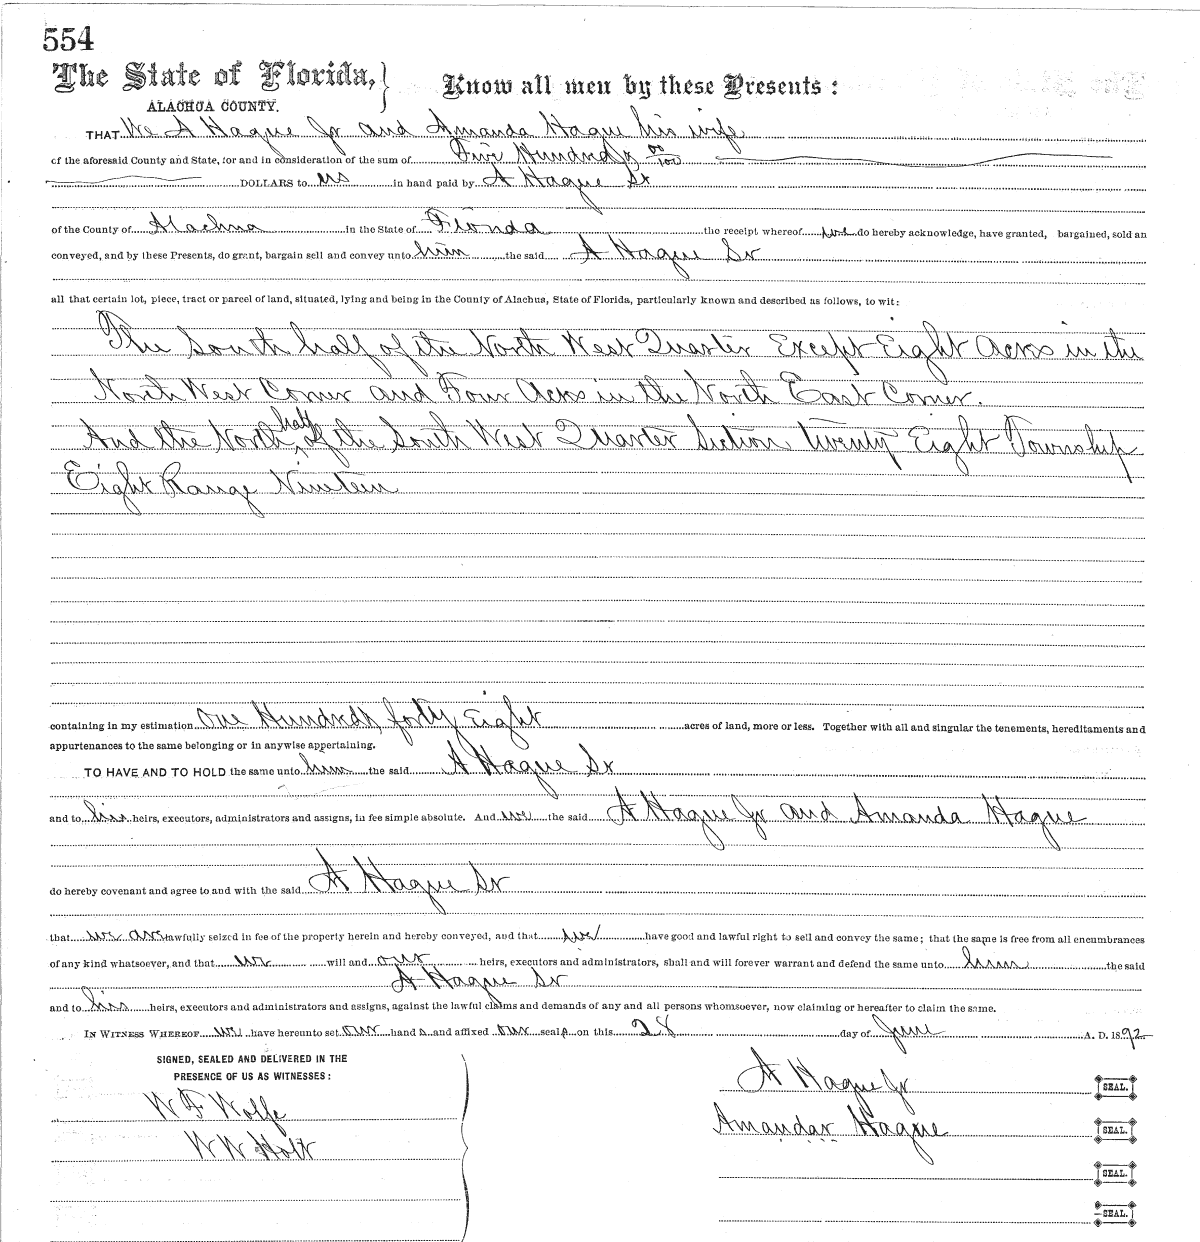 554
The State of Florida, } Know all men by these Presents :
ALACHUA COUNTY.
THAT We A Hague Jr and Amanda Hague his wife
of the aforesaid County and State, for and in consideration of the sum of Five Hundred 00/100
DOLLARS to us in hand paid by A Hague Sr
of the County of Alachua in the State of Florida the receipt whereof we do hereby acknowledge, have granted, bargained, sold an
conveyed, and by these Presents, do grant, bargain sell and convey unto him the said A Hague Sr
all that certain lot, piece, tract or parcel of land, situated, lying and being in the County of Alachua, State of Florida, particularly known and described as follows, to wit:
The South half of the North West Quarter Except Eight Acres in the
North West Corner and Four Acres in the North East Corner.
And the North half of the South West Quarter Section twenty Eight Township
Eight Range Nineteen
containing in my estimation One Hundred forty Eight acres of land, more or less. Together with all and singular the tenements, hereditaments and
appurtenances to the same belonging or in anywise appertaining.
TO HAVE AND TO HOLD the same unto him the said A Hague Sr
and to his heirs, executors, administrators and assigns, in fee simple absolute. And we the said A Hague Jr and Amanda Hague
do hereby covenant and agree to and with the said A Hague Sr
that we are lawfully seized in fee of the property herein and hereby conveyed, and that we have good and lawful right to sell and convey the same; that the same is free from all encumbrances
of any kind whatsoever, and that we will and our heirs, executors and administrators, shall and will forever warrant and defend the same unto him the said
A Hague Sr
and to his heirs, executors and administrators and assigns, against the lawful claims and demands of any and all persons whomsoever, now claiming or hereafter to claim the same.
IN WITNESS WHEREOF we have hereunto set our hand s and affixed our seal s on this 28 day of June A. D. 1892
SIGNED, SEALED AND DELIVERED IN THE
PRESENCE OF US AS WITNESSES :
A Hague Jr SEAL.
W F Wolfe
Amandar Hague SEAL.
W W Holt
SEAL.
SEAL.